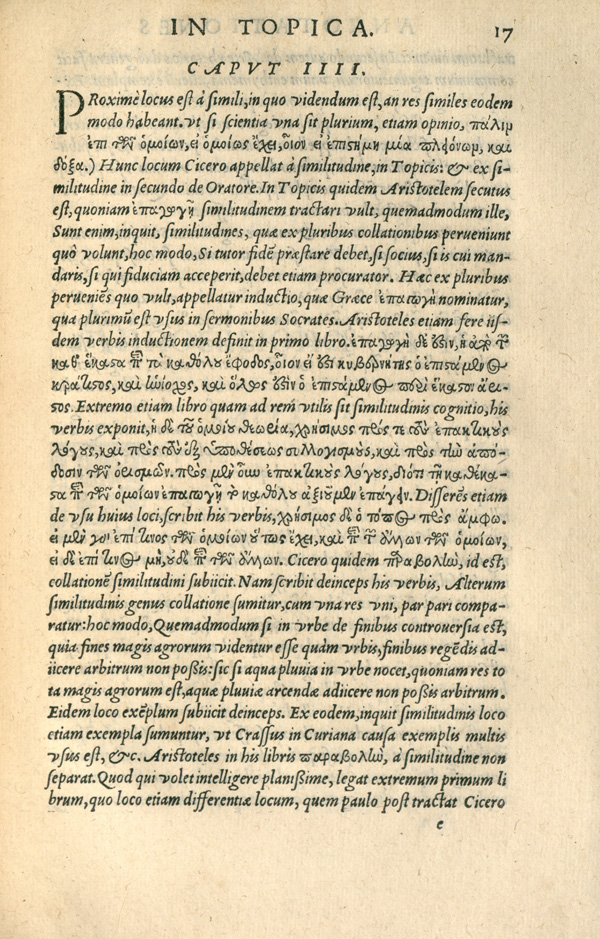 IN TOPICA. 17
CAPVT IIII.
PRoximè locus est à simili, in quo videndum est, an res similes eodem
modo habeant. vt si scientia vna sit plurium, etiam opinio, πάλιν
ἐπὶ τῶν ὁμοίων, εἰ ὁμοίως ἔχει, οἷον εἰ ἐπιστήμη μία πλειόνων, καὶ
δόξα.) Hunc locum Cicero appellat à similitudine, in Topicis: & ex si-
militudine in secundo de Oratore. In Topicis quidem Aristotelem secutus
est, quoniam ἐπαγωγῇ similitudinem tractari vult, quemadmodum ille,
Sunt enim, inquit, similitudines, quæ ex pluribus collationibus perueniunt
quò volunt, hoc modo, Si tutor fidẽ præstare debet, si socius, si is cui man-
daris, si qui fiduciam acceperit, debet etiam procurator. Hæc ex pluribus
perueniẽs quo vult, appellatur inductio, quæ Græce ἐπαγωγὴ nominatur,
qua plurimũ est vsus in sermonibus Socrates. Aristoteles etiam fere iis-
dem verbis inductionem definit in primo libro. ἐπαγωγὴ δέ ἐστιν, ἡ ἀπὸ τῶν
καθ' ἕκαστα ἐπὶ τὰ καθόλου ἔφοδος, οἷον εἰ ἔστι κυβερνήτης ὁ ἐπιστάμενος
κράτιστος, καὶ ἡνίοχος, καὶ ὅλως ἐστὶν ὁ ἐπιστάμενος περὶ ἕκαστον ἄρι-
στος. Extremo etiam libro quam ad rem vtilis sit similitudinis cognitio, his
verbis exponit, ἡ δὲ τοῦ ὁμοίου θεωρία, χρήσιμος πρός τε τοὺς ἐπακτικοὺς
λόγους, καὶ πρὸς τοὺς ἐξ ὑποθέσεως συλλογισμοὺς, καὶ πρὸς τὴν ἀπό-
δοσιν τῶν ὁρισμῶν. πρὸς μὲν οὖν ἐπακτικοὺς λόγους, διότι τῇ καθέκα-
στα ἐπὶ τῶν ὁμοίων ἐπαγωγῇ τὸ καθόλου ἀξιοῦμεν ἐπάγειν. Disserẽs etiam
de vsu huius loci, scribit his verbis, χρήσιμος δὲ ὁ τόπος πρὸς ἄμφω.
εἰ μὲν γὰρ ἐπί τινος τῶν ὁμοίων οὕτως ἔχει, καὶ ἐπὶ τῶν ἄλλων τῶν ὁμοίων,
εἰ δὲ ἐπί τινος μὴ, οὐδὲ ἐπὶ τῶν ἄλλων. Cicero quidem παραβολὴν, id est,
collationẽ similitudini subiicit. Nam scribit deinceps his verbis, Alterum
similitudinis genus collatione sumitur, cum vna res vni, par pari compa-
ratur: hoc modo, Quemadmodum si in vrbe de finibus controuersia est,
quia fines magis agrorum videntur esse quàm vrbis, finibus regẽdis ad-
iicere arbitrum non possis: sic si aqua pluuia in vrbe nocet, quoniam res to
ta magis agrorum est, aquæ pluuiæ arcendæ adiicere non possis arbitrum.
Eidem loco exẽplum subiicit deinceps. Ex eodem, inquit similitudinis loco
etiam exempla sumuntur, vt Crassus in Curiana causa exemplis multis
vsus est, &c. Aristoteles in his libris παραβολὴν, à similitudine non
separat. Quod qui volet intelligere planissime, legat extremum primum li
brum, quo loco etiam differentiæ locum, quem paulo post tractat Cicero
e